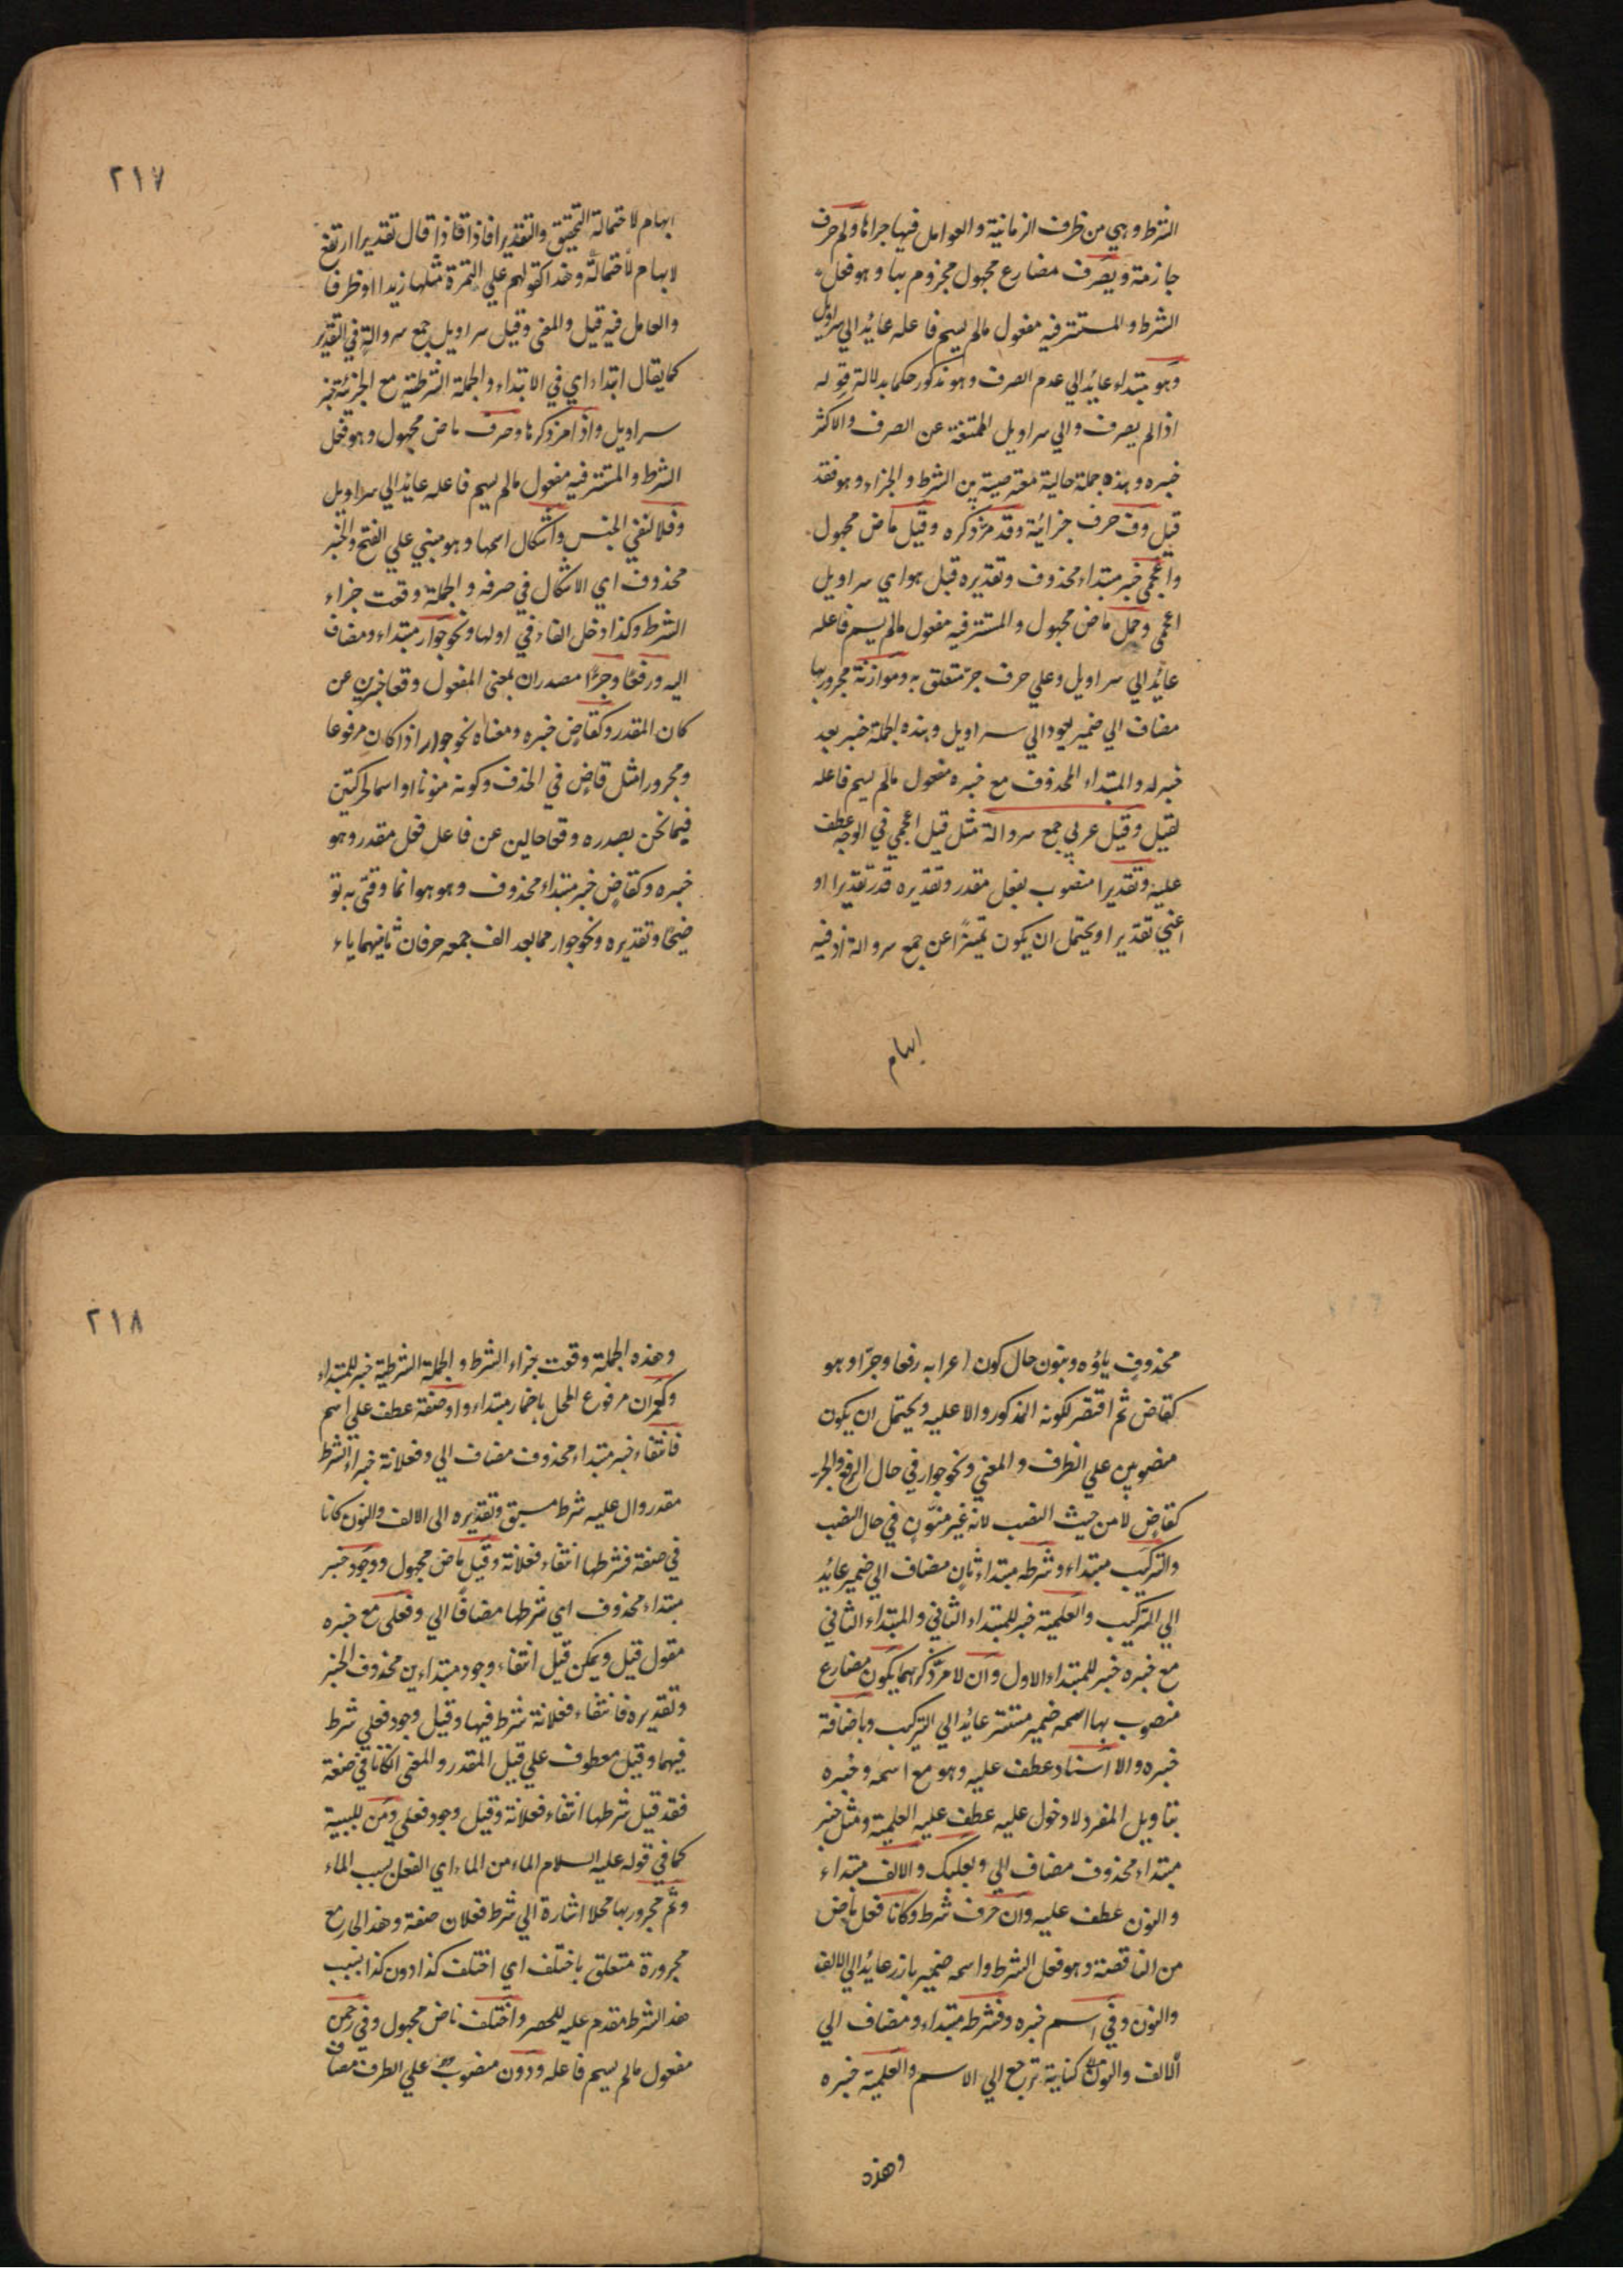 الشرط وهي من ظرف الزمانية والعوامل فيها جزاها ولم حرف
جازمة ويصرف مضارع مجهول مجزوم بها وهو فعل
الشرط والمستتر فيه مفعول مالم يسم فاعله عائد الي سراويل
وهو مبتداء عايد الي عدم الصرف وهو مذكور حكما بدلالة قوله
اذا لم يصرف والي سراويل الممتنعة عن الصرف والاكثر
خبره وهذه جملة حالية معترضية بين الشرط والجزاء وهو فقد
قيل وف حرف جزائية وقد مر ذكره وقيل ماض مجهول
واعجمي خبر مبتداء محذوف وتقديره قيل هو اي سراويل
اعجمي وحمل ماض مجهول والمستتر فيه مفعول مالم يسم فاعله
عائد الي سراويل وعلي حرف جر متعلق به وموازنة مجرور بها
مضاف الي ضمير يعود الي سراويل وهذه الجملة خبر بعد
خبر له والمبتداء المحذوف مع خبره مفعول مالم يسم فاعله
لقيل وقيل عربي جمع سروالة مثل قيل اعجمي في الوجه عطف
عليه وتقديرا منصوب بفعل مقدر وتقديره قدر تقديرا او
اعني تقديرا ويحتمل ان يكون تميزا عن جمع سروالة اذ فيه
ابهام
٢١٧
ابهام لاحتمالة التحقيق والتقدير فاذا قال تقديرا ارتفع
لابهام لاحتمالة وهذا كقولهم علي التمرة مثلها زيدا او ظرفا
والعامل فيه قيل والمعني وقيل سراويل جمع سروالة في التقدير
كما يقال ابتداء اي في الابتداء والجملة الشرطية مع الجزئية خبر
سراويل واذا مر ذكرها وصرف ماض مجهول وهو فعل
الشرط والمستتر فيه مفعول مالم يسم فاعله عايد الي سراويل
وفلا لنفي الجنس واشكال اسمها وهو مبني علي الفتح والخبر
محذوف اي الاشكال في صرفه والجملة وقعت جزاء
الشرط وكذا دخل الفاء في اولها ونحو جوار مبتداء ومضاف
اليه ورفعا وجرا مصدران بمعني المفعول وقعا خبرين عن
كان المقدر وكقاض خبره ومعناه نحو جوار اذا كان مرفوعا
ومجرورا مثل قاض في الحذف وكونه منونا او اسما لحركتين
فيما نحن بصدره وقعا حالين عن فاعل فعل مقدر وهو
خبره وكقاض خبر مبتداء محذوف وهو هو انما وقتي به تو
ضيحا وتقديره ونحو جوار مما بعد الف جمعه حرفان ثانيهما ياء
محذوف ياؤه وبنون حال كون اعرابه رفعا وجرا وهو
كقاض ثم اقتصر لكونه المذكور والا عليه ويحتمل ان يكون
منصوبين علي الظرف والمعني ونحو جوار في حال الرفع والجر
كقاض لا من حيث النصب لانه غير منون في حال النصب
والتركيب مبتداء وشرطه مبتداء ثان مضاف الي ضمير عائد
الي التركيب والعلمية خبر للمبتداء الثاني والمبتداء الثاني
مع خبره خبر للمبتداء الاول وان لا مر ذكرهما يكون مضارع
منصوب بها اسمه ضمير مستتر عائد الي التركيب وباضافة
خبره والا اسناد عطف عليه وهو مع اسمه وخبره
بتاويل المفرد لا دخول عليه عطف عليه العلمية ومثل خبر
مبتداء محذوف مضاف الي وبعلبك والالف مبتداء
والنون عطف عليه وان حرف شرط وكانا فعل ماض
من الناقصة وهو فعل الشرط واسمه ضمير بارز عائد الي الالف
والنون وفي اسم خبره وفشرطه مبتداء ومضاف الي
الالف والنون كناية ترجع الي الاسم والعلمية خبره
وهذه
٢١٨
وهذه الجملة وقعت جزاء الشرط والجملة الشرطية خبر للمبتداء
وكعمران مرفوع المحل باضمار مبتداء واوصفة عطف علي اسم
فانتفاء خبر مبتداء محذوف مضاف الي وفعلانة خبر الشرط
مقدر وال عليه شرط مسبق وتقديره الي الالف والنون كانا
في صفة فشرطها انتفاء فعلانة وقيل ماض مجهول ووجود خبر
مبتداء محذوف اي شرطها مضافا الي وفعلي مع خبره
مقول قيل ويمكن قيل انتفاء وجود مبتداءين محذوف الخبر
وتقديره فانتفاء فعلانة شرط فيها وقيل وجود فعلي شرط
فيهما وقيل معطوف علي قيل المقدر والمعني ان كانا في صفة
فقد قيل شرطها انتفاء فعلانة وقيل وجود فعلي ومن للسببية
كما في قوله عليه السلام الماء من الماء اي الفعل بسبب الماء
وثم مجرور بها محلا اشارة الي شرط فعلان صفة وهذا الجار مع
مجرورة متعلق باختلف اي اختلف كذا دون كذا بسبب
هذا الشرط مقدم عليه للحصر واختلف ماض مجهول وفي رحمن
مفعول مالم يسم فاعله ودون منصوب علي الظرف مضاف